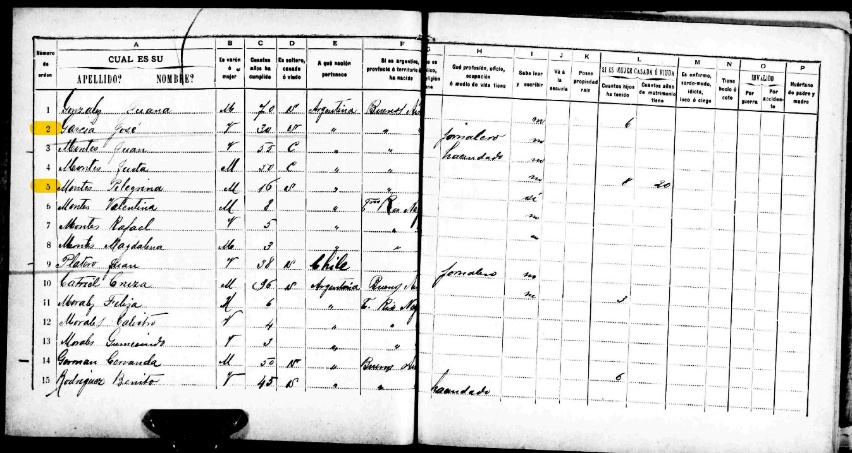 A B C D E F G H I J K L M N O P
Número de orden CUAL ES SU APELLIDO? NOMBRE? Es varón ó mujer Cuantos años ha cumplido Es soltero, casado ó viudo A qué nación pertenece Si es argentino, provincia ó territorio ha nacido Qué profesión, oficio, ocupación ó medio de vida tiene Sabe leer y escribir Vá á la escuela Posee propiedad raiz SI ES MUJER CASADA Ó VIUDA Cuantos hijos ha tenido Cuantos años de matrimonio tiene Es enfermo, sordo-mudo, idiota, loco ó ciego Tiene bocio ó coto INVÁLIDO Por guerra Por accidente Huérfano de padre y madre
1 Gonzalez Juana M 70 Argentina Buenos 6
2 García José V 30 " " jornalero
3 Montes Juan V 55 C " " hacendado
4 Montes Justa M 50 C " " 8 20
5 Montes Pelegrina M 16 S " " si
6 Montes Valentina M 8 "
7 Montes Rafael V 5 "
8 Montes Magdalena M 3 " "
9 Platero Juan V 38 Chile jornalero
10 Catriel M 96 Argentina Buenos 3
11 Morales Felisa 6 "
12 Morales Calistro V 4 " "
13 Morales Gumecindo V 3 " "
14 German Cervanda M 50 " Buenos 6
15 Rodriguez Benito V 45 " " hacendado